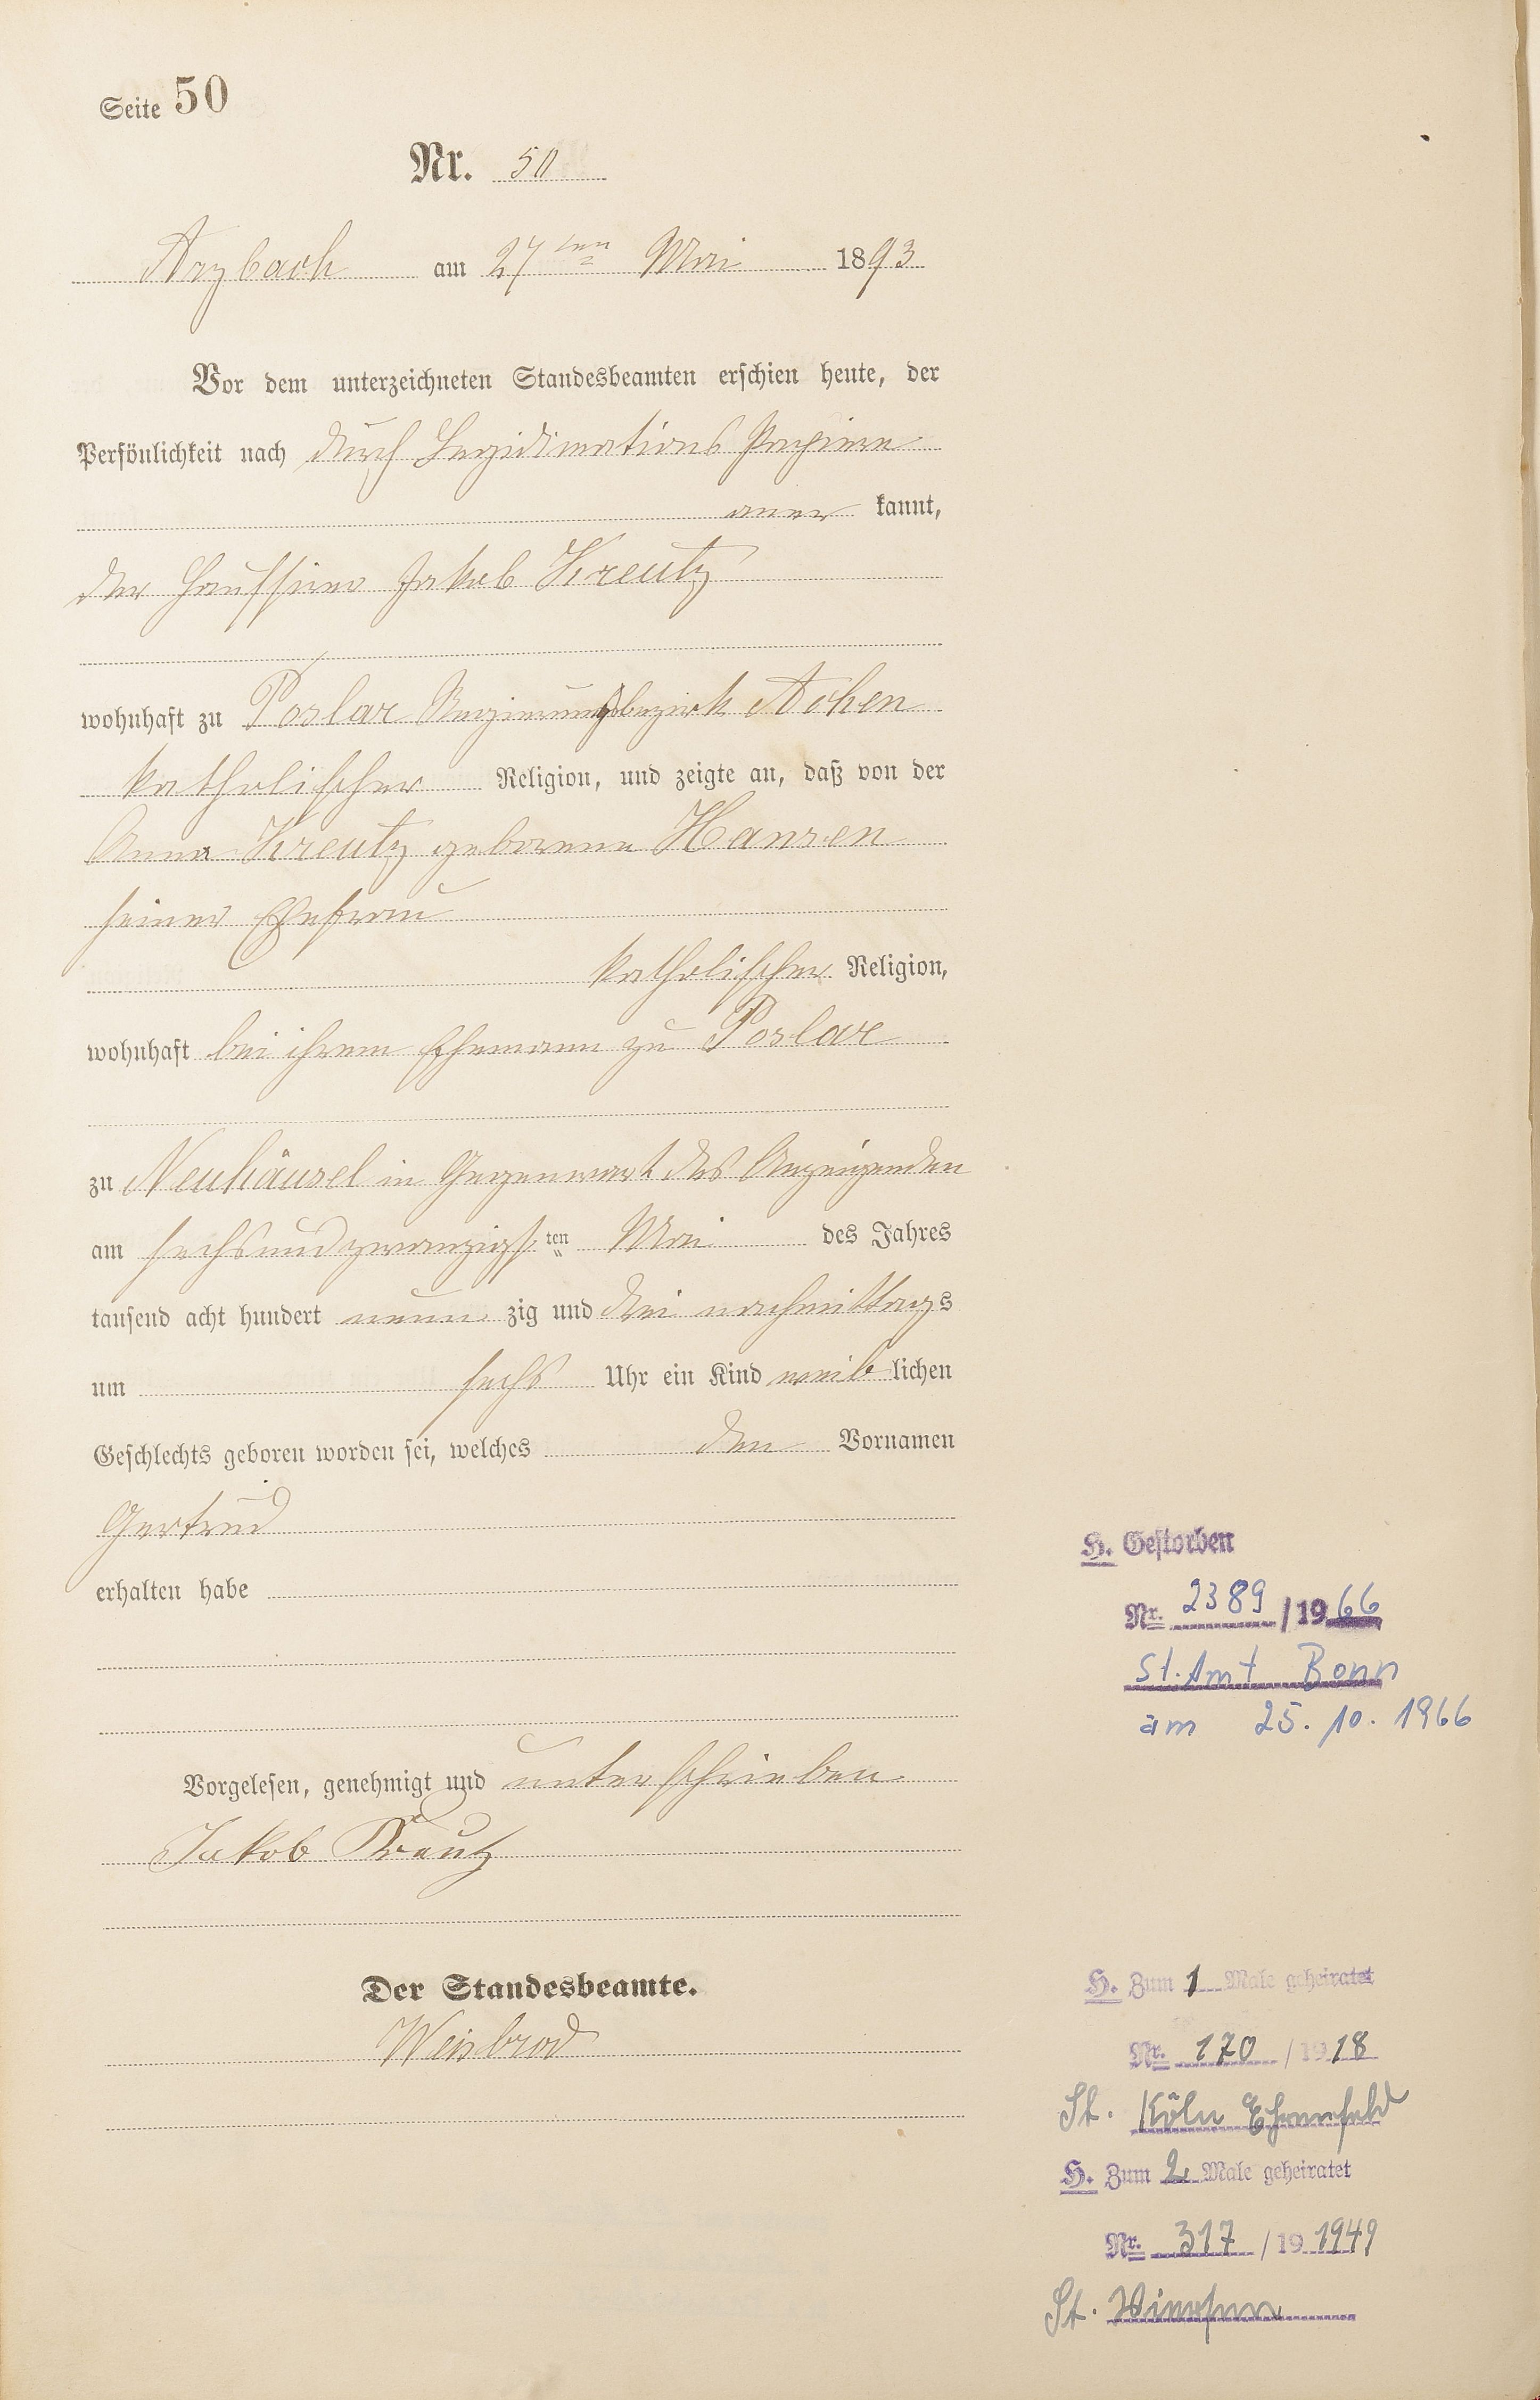 Seite 50
Nr. 50
Arzbach am 27ten Mai 1893
Vor dem unterzeichneten Standesbeamten erschien heute, der
Persönlichkeit nach durch Legidimations Papiere
aner kannt,
der Haussirer Jakob Kreutz
wohnhaft zu Poslar Regierungsbezirk Achen
katholischer Religion, und zeigte an, daß von der
Anna Kreutz geborene Hansen
seiner Ehefrau
katholischer Religion,
wohnhaft bei ihrem Ehemann zu Poslar
zu Neuhäusel in Gegenwart des Anzeigenden
am sechsundzwanzigsten Mai des Jahres
tausend acht hundert neun zig und drei nachmittags
um sechs Uhr ein Kind weiblichen
Geschlechts geboren worden sei, welches den Vornamen
Gertrud
erhalten habe
Vorgelesen, genehmigt und unterschrieben
Jakob Kreutz
Der Standesbeamte.
Weisbrod
H. Gestorben
Nr. 2389/1966
St. Amt Bonn
am 25. 10. 1966
H. Zum 1 Male geheiratet
Nr. 170/1918
St. Köln Ehrenfeld
H. Zum 2 Male geheiratet
Nr. 317/19 1949
St. Viersen